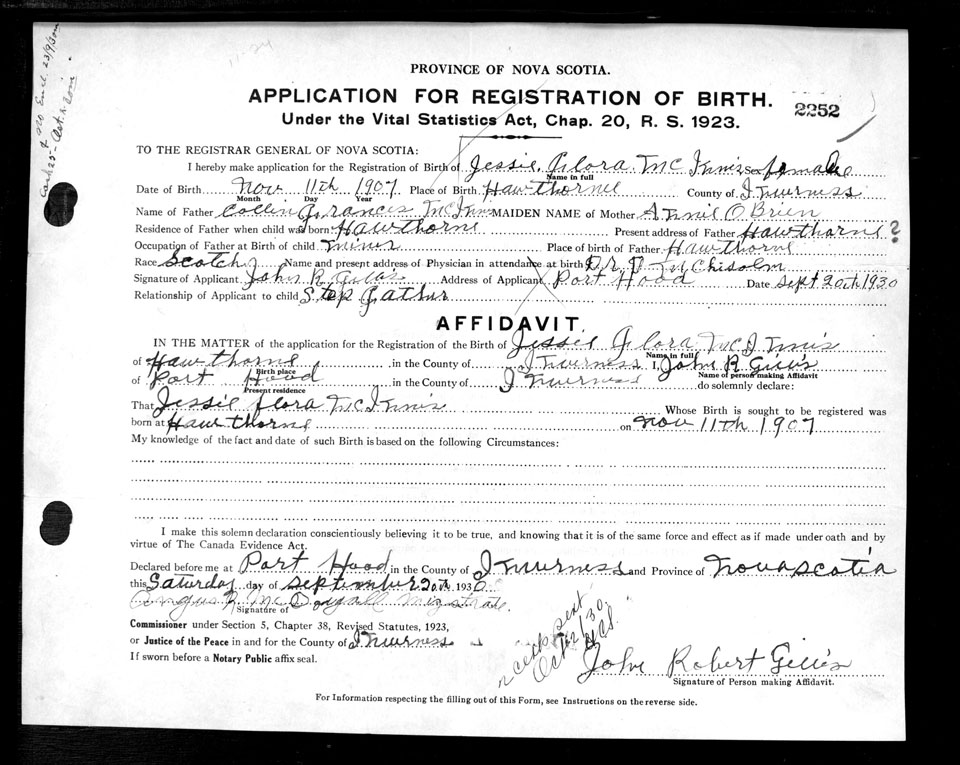 Cash 25¢ & No Encl. 23/9/30
PROVINCE OF NOVA SCOTIA.
APPLICATION FOR REGISTRATION OF BIRTH.
2252
Under the Vital Statistics Act, Chap. 20, R. S. 1923.
TO THE REGISTRAR GENERAL OF NOVA SCOTIA:
I hereby make application for the Registration of Birth of Jessie Flora McInnis Sex female
Name in full
Date of Birth Nov 11th 1907 Place of Birth Hawthorne County of Inverness
Month Day Year
Name of Father Collin Frances McInnis MAIDEN NAME of Mother Annie O Brien
Residence of Father when child was born Hawthorne Present address of Father Hawthorne ?
Occupation of Father at Birth of child miner Place of birth of Father Hawthorne
Race Scotch Name and present address of Physician in attendance at birth Dr. McChisolm
Signature of Applicant John R Gillis Address of Applicant Port Hood Date Sept 20th 1930
Relationship of Applicant to child Step Father
AFFIDAVIT.
IN THE MATTER of the application for the Registration of the Birth of Jessie Flora McInnis
Name in full
of Hawthorne in the County of Inverness I, John R Gillis
Birth place Name of person making Affidavit
of Port Hood in the County of Inverness do solemnly declare:
Present residence
That Jessie Flora McInnis Whose Birth is sought to be registered was
born at Hawthorne on Nov 11th 1907
My knowledge of the fact and date of such Birth is based on the following Circumstances:
I make this solemn declaration conscientiously believing it to be true, and knowing that it is of the same force and effect as if made under oath and by
virtue of The Canada Evidence Act.
Declared before me at Port Hood in the County of Inverness and Province of Nova Scotia
this Saturday day of September 20th 1930
Angus R McDougall
Signature of
Commissioner under Section 5, Chapter 38, Revised Statutes, 1923,
or Justice of the Peace in and for the County of Inverness
If sworn before a Notary Public affix seal.
Oct 2/30
John Robert Gillis
Signature of Person making Affidavit.
For Information respecting the filling out of this Form, see Instructions on the reverse side.